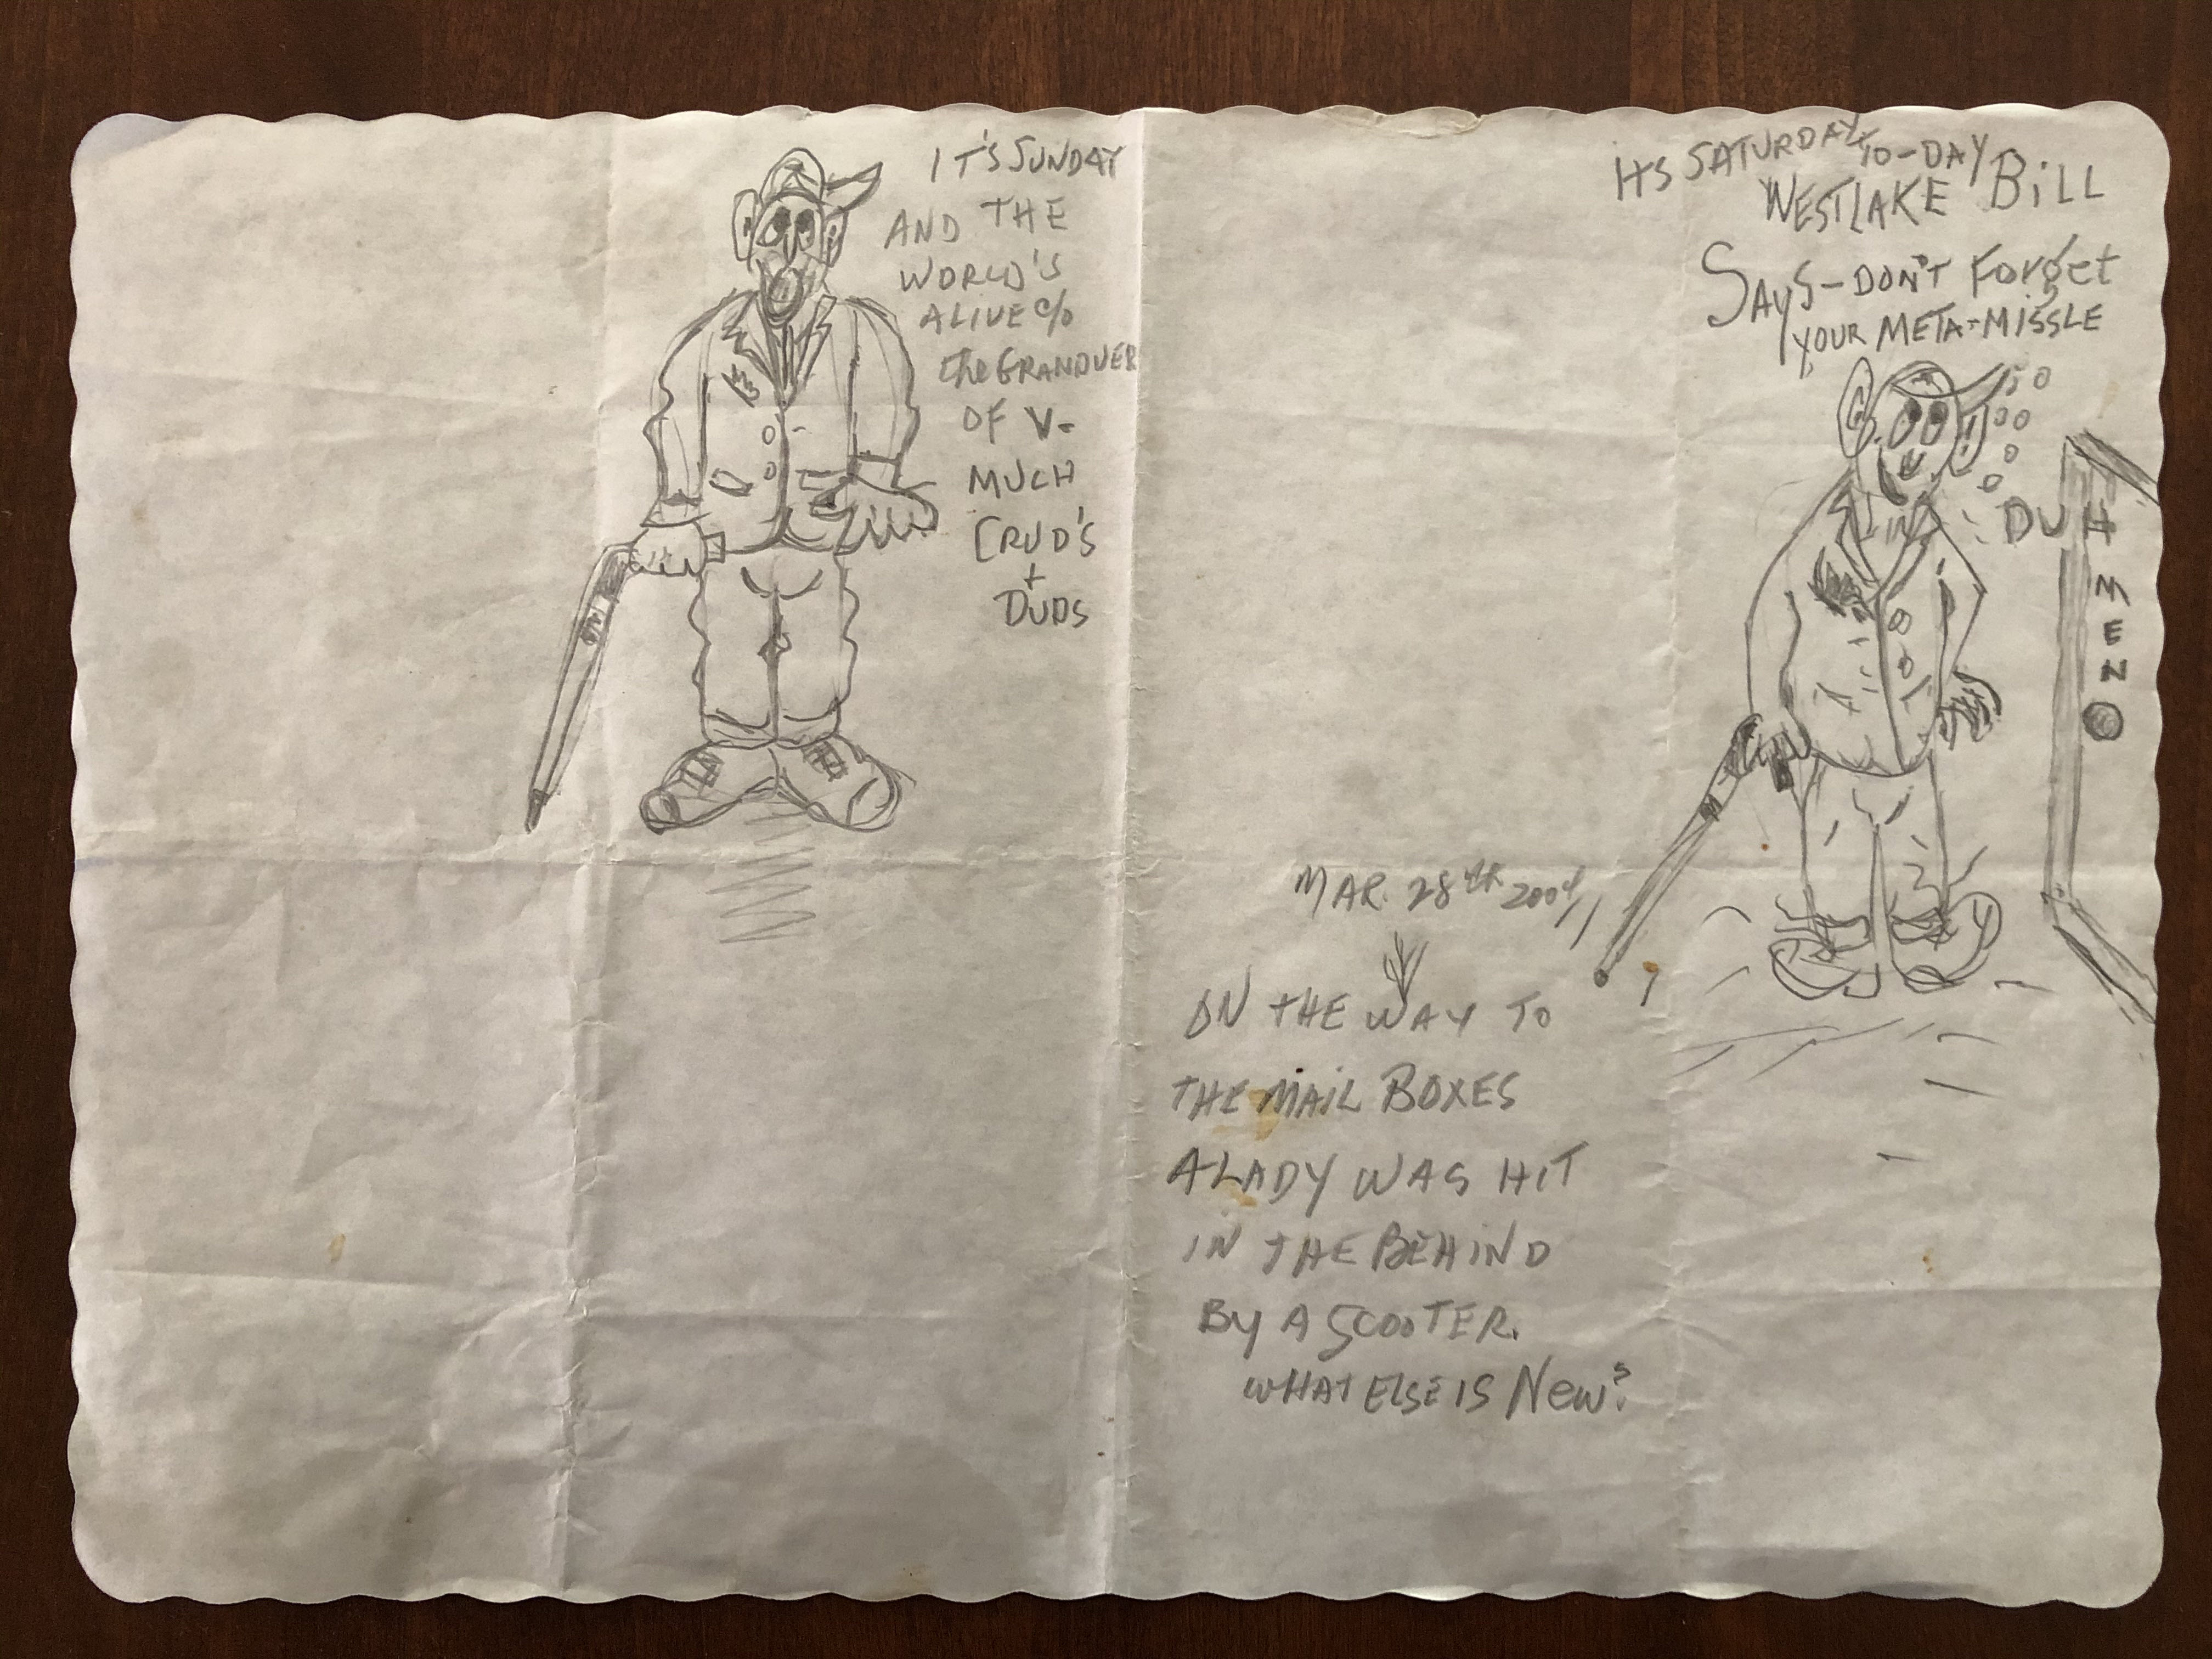 IT'S SUNDAY
AND THE
WORLD'S
ALIVE %
the GRANDUER
OF V-
MUCH
CRUD'S
+
DUDS
ITS SATURDAY TO-DAY
WESTLAKE BILL
SAYS-DON'T Forget
YOUR META-MISSLE
DUH
MEN
MAR. 28TH 2004
ON THE WAY TO
THE MAIL BOXES
A LADY WAS HIT
IN THE BEHIND
BY A SCOOTER.
WHAT ELSE IS New?